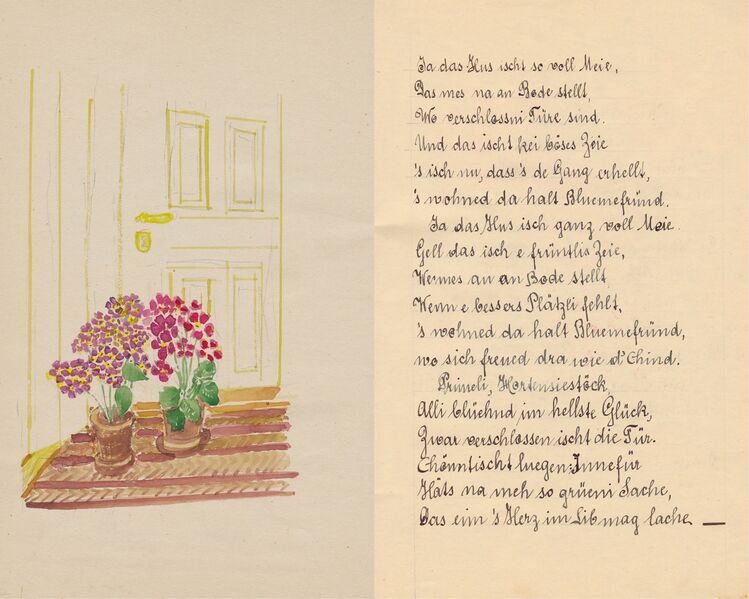 Ja das Hus ischt so voll Meie,
Das mes na an Bode stellt,
Wo verschlossni Türe sind.
Und das ischt kei böses Zeie
's isch nu, dass's de Gang erhellt,
's wohned da halt Bluemefründ.
Ja das Hus isch ganz voll Meie.
Gell das isch e früntlis Zeie,
Wenmes au an Bode stellt
Wenn e bessers Plätzli fehlt,
's wohned da halt Bluemefründ,
wo sich freued dra wie d'Chind.
Prümeli, Hortensiestöck
Alli blüehnd im hellste Glück,
Zwar verschlossen ischt die Tür.
Chönntischt luegen: Innefür
Häts na meh so grüeni Sache,
Das eim 's Herz im Lib mag lache —